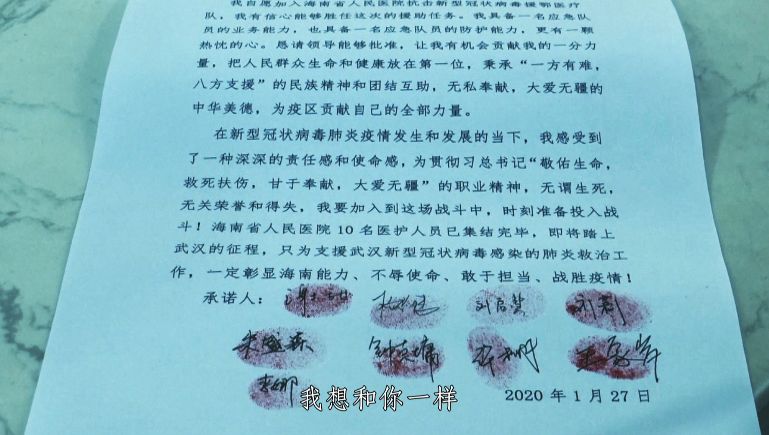 我自愿加入海南省人民医院抗击新型冠状病毒援鄂医疗
队，我有信心能够胜任这次的援助任务。我具备一名应急队
员的业务能力，也具备一名应急队员的防护能力，更有一颗
热忱的心。恳请领导能够批准，让我有机会贡献我的一分力
量，把人民群众生命和健康放在第一位，秉承“一方有难，
八方支援”的民族精神和团结互助，无私奉献，大爱无疆的
中华美德，为疫区贡献自己的全部力量。
在新型冠状病毒肺炎疫情发生和发展的当下，我感受到
了一种深深的责任感和使命感，为贯彻习总书记“敬佑生命，
救死扶伤，甘于奉献，大爱无疆”的职业精神，无谓生死，
无关荣誉和得失，我要加入到这场战斗中，时刻准备投入战
斗！海南省人民医院 10 名医护人员已集结完毕，即将踏上
武汉的征程，只为支援武汉新型冠状病毒感染的肺炎救治工
作，一定彰显海南能力、不辱使命、敢于担当、战胜疫情！
承诺人：
李娜
我想和你一样
2020 年 1 月 27 日